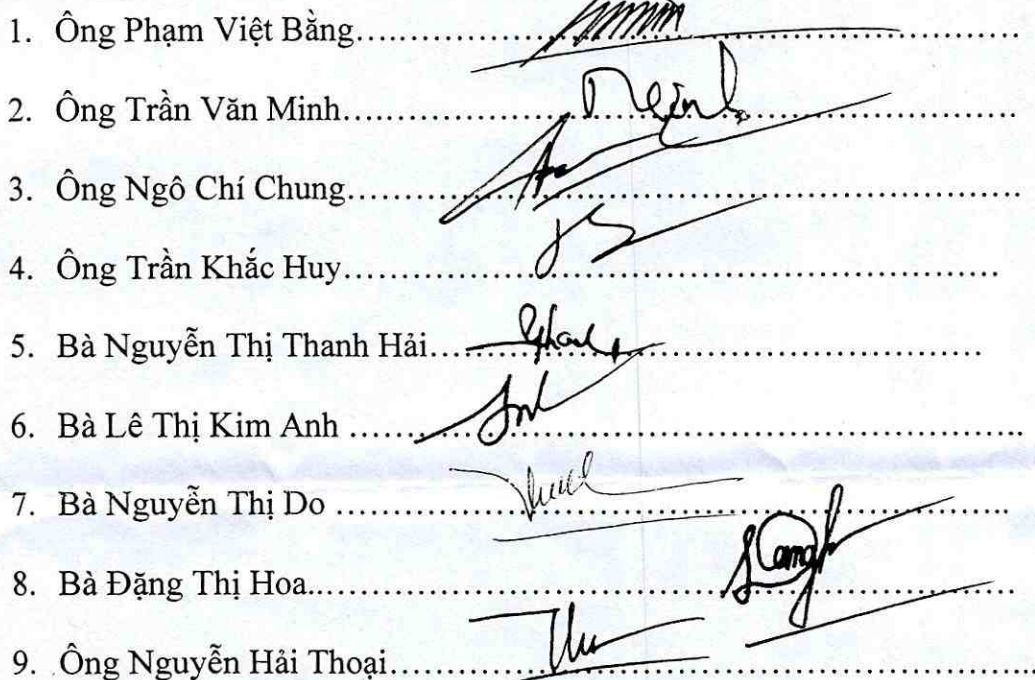 1. Ông Phạm Việt Bằng
2. Ông Trần Văn Minh
3. Ông Ngô Chí Chung
4. Ông Trần Khắc Huy
5. Bà Nguyễn Thị Thanh Hải
6. Bà Lê Thị Kim Anh
7. Bà Nguyễn Thị Do
8. Bà Đặng Thị Hoa
9. Ông Nguyễn Hải Thoại